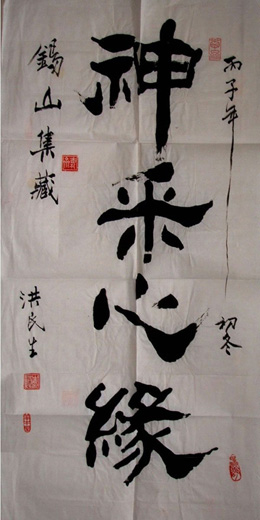 丙子年
初冬
神采心緣
錫山集藏
洪民生